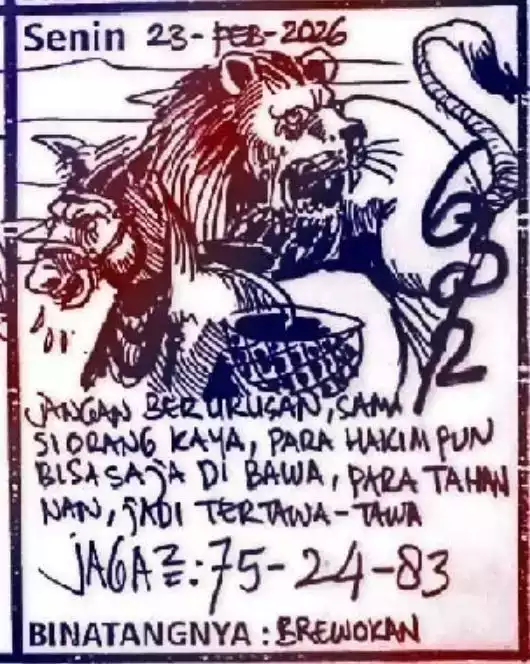 Senin 23-FEB-2026
6002
JANGAN BERURUSAN, SAMA
SI ORANG KAYA, PARA HAKIM PUN
BISA SAJA DI BAWA, PARA TAHAN
NAN, JADI TERTAWA-TAWA
JAGA2=:75-24-83
BINATANGNYA : BREWOKAN